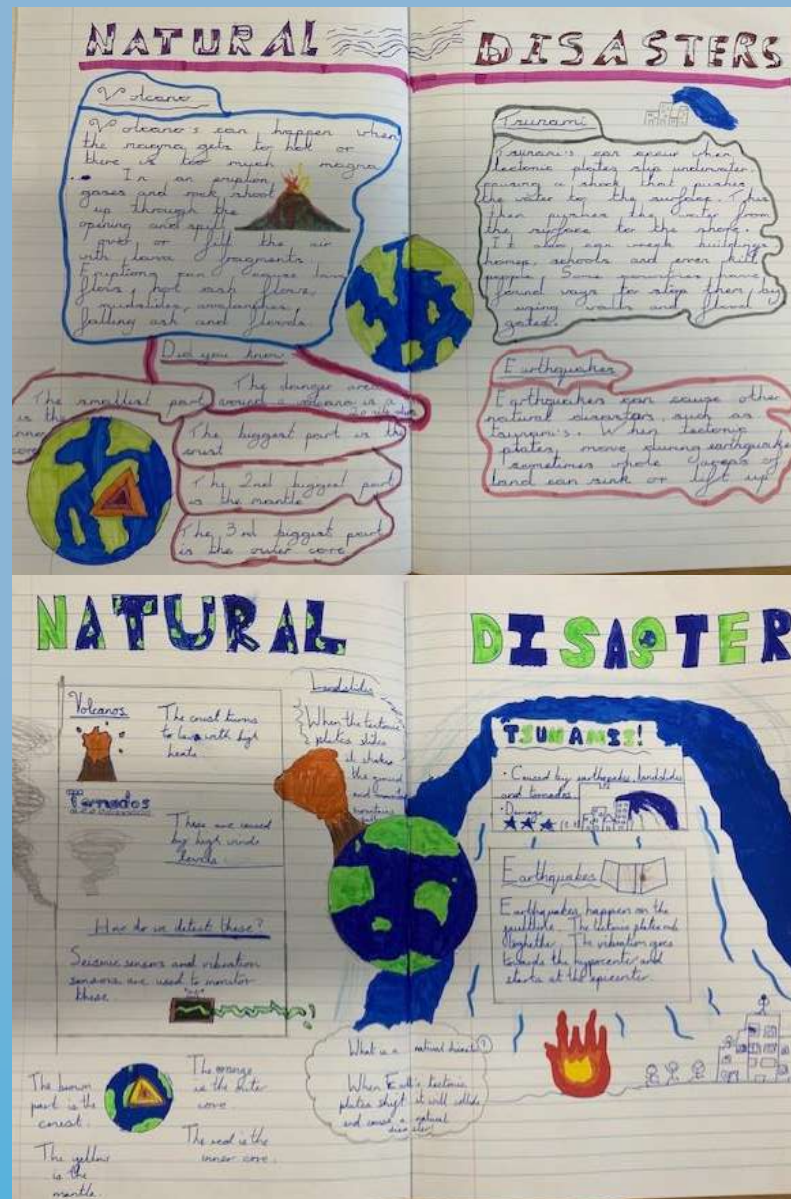 NATURAL DISASTERS
Volcano
Volcano's can happen when
the magma gets to hot or
there is too much magma
In an eruption
gases and rock shoot
up through the
opening and spill
over or fill the air
with lava fragments.
Eruptions can cause lava
flows, hot ash flows,
mudslides, avalanches,
falling ash and floods.
Did you know
The danger area
around a volcano is a
20 mile
The smallest part
is the
inner
core
The biggest part is the
crust
The 2nd biggest part
is the mantle
The 3rd biggest part
is the outer core
Tsunami
Tsunami's can occur when
tectonic plates slip underwater
causing a shock that pushes
the water to the surface. This
then pushes the water from
the surface to the shore.
It also can wreck buildings
homes, schools and even kill
people. Some countries have
found ways to stop them by
using walls and flood
gates.
Earthquakes
Earthquakes can cause other
natural disasters, such as
tsunami's. When tectonic
plates move during earthquake
sometimes whole areas of
land can sink or lift up
NATURAL DISASTER
Volcanos
The crust turns
to lava with high
heats.
Tornados
These are caused
by high winds
levels.
How do we detect these?
Seismic sensors and vibration
sensors are used to monitor
these.
The brown
part is the
crust.
The yellow
is the
mantle.
The orange
is the outer
core.
The red is the
inner core.
Landslides
When the tectonic
plates slides
it shakes
the ground
and
mountains
TSUNAMIS!
• Caused by earthquakes, landslides
and tornados
• Damage
Earthquakes
Earthquakes happen on the
faultline. The tectonic plates rub
together. The vibration goes
towards the hypocenter and
starts at the epicenter.
What is a natural disaster?
When Earth's tectonic
plates shift it will collide
and cause a natural
disaster!